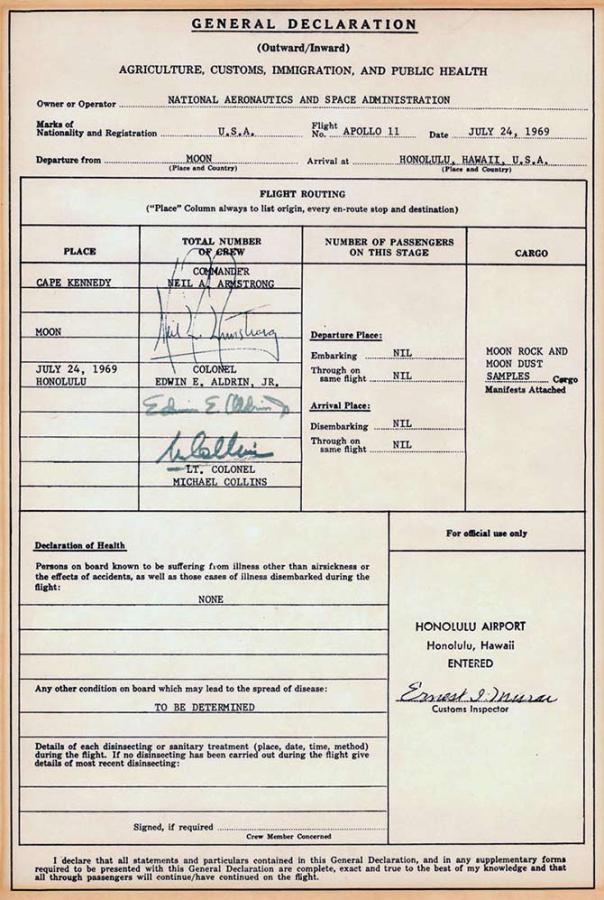 GENERAL DECLARATION
(Outward/Inward)
AGRICULTURE, CUSTOMS, IMMIGRATION, AND PUBLIC HEALTH
Owner or Operator NATIONAL AERONAUTICS AND SPACE ADMINISTRATION
Marks of
Nationality and Registration U.S.A. Flight No. APOLLO 11 Date JULY 24, 1969
Departure from MOON Arrival at HONOLULU, HAWAII, U.S.A.
(Place and Country) (Place and Country)
FLIGHT ROUTING
("Place" Column always to list origin, every en-route stop and destination)
PLACE
TOTAL NUMBER
OF CREW
NUMBER OF PASSENGERS
ON THIS STAGE
CARGO
CAPE KENNEDY
MOON
JULY 24, 1969
HONOLULU
COMMANDER
NEIL A. ARMSTRONG
Neil A. Armstrong
COLONEL
EDWIN E. ALDRIN, JR.
Edwin E Aldrin Jr
M Collins
LT. COLONEL
MICHAEL COLLINS
Departure Place:
Embarking NIL
Through on
same flight NIL
Arrival Place:
Disembarking NIL
Through on
same flight NIL
MOON ROCK AND
MOON DUST
SAMPLES Cargo
Manifests Attached
Declaration of Health
Persons on board known to be suffering from illness other than airsickness or
the effects of accidents, as well as those cases of illness disembarked during the
flight:
NONE
Any other condition on board which may lead to the spread of disease:
TO BE DETERMINED
Details of each disinsecting or sanitary treatment (place, date, time, method)
during the flight. If no disinsecting has been carried out during the flight give
details of most recent disinsecting:
Signed, if required
Crew Member Concerned
For official use only
HONOLULU AIRPORT
Honolulu, Hawaii
ENTERED
Ernest I. Murai
Customs Inspector
I declare that all statements and particulars contained in this General Declaration, and in any supplementary forms
required to be presented with this General Declaration are complete, exact and true to the best of my knowledge and that
all through passengers will continue/have continued on the flight.